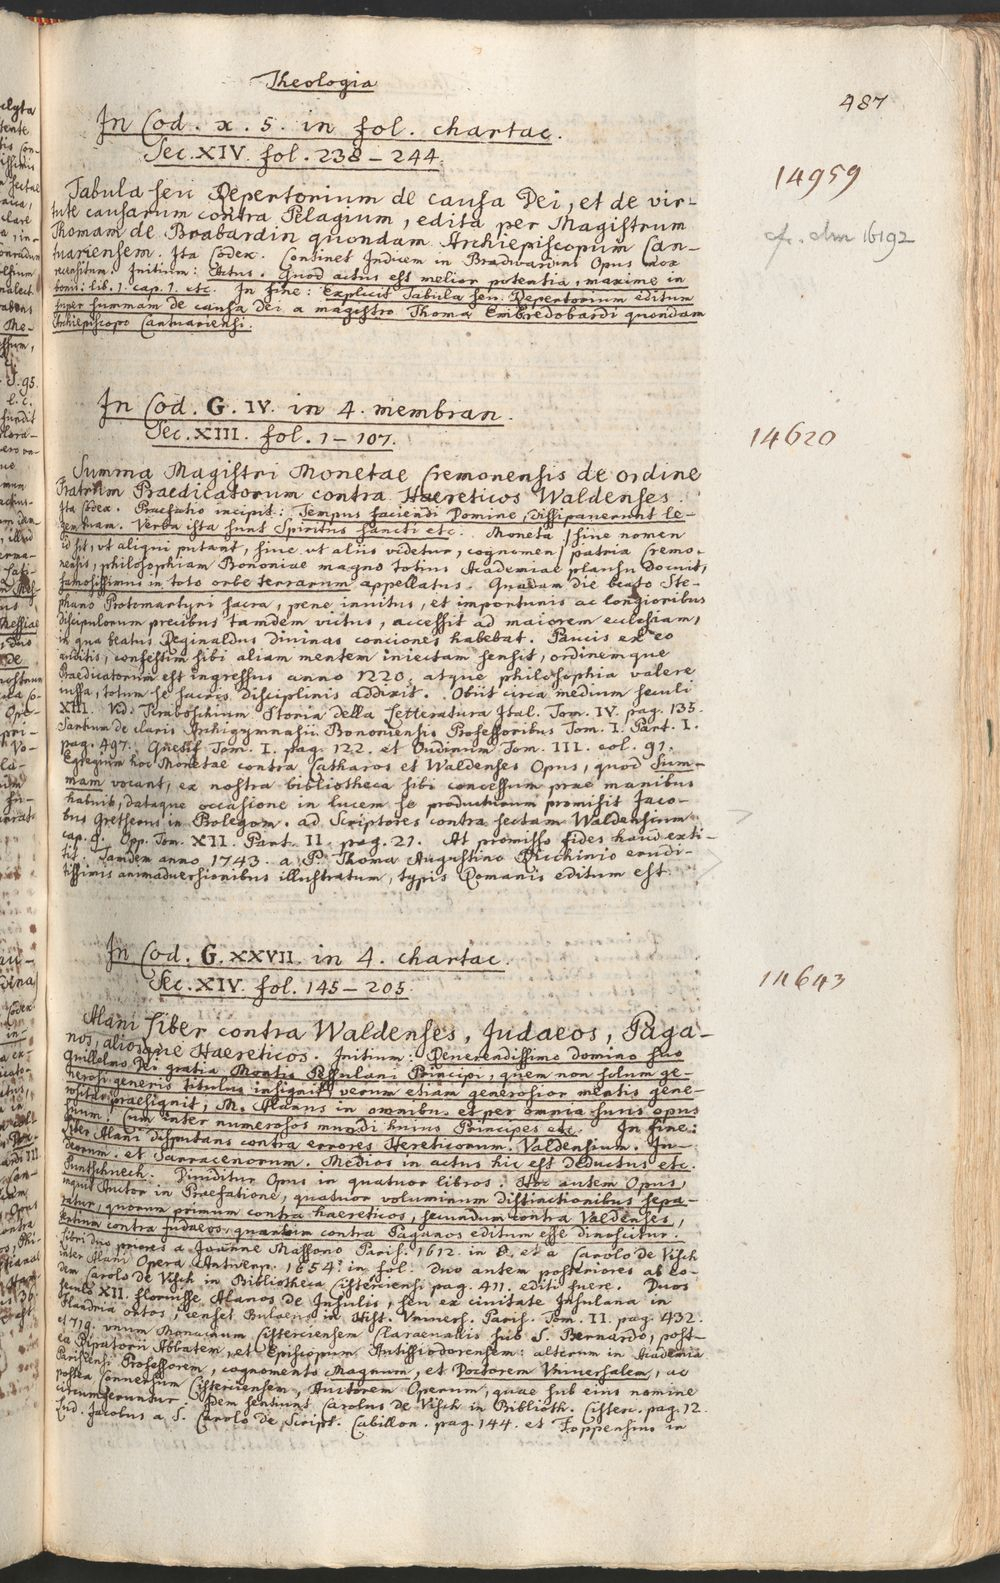 Theologia
487
In Cod. x. 5. in fol. chartac.
Sec. XIV. fol. 238 – 244.
14959
Tabula seu Repertorium de causa Dei, et de vir-
tute causarum contra Pelagium, edita per Magistrum
Thomam de Brabardin quondam Archiepiscopum Can-
tuariensem. Ita Codex. Continet Indicem in Bradwardini Opus mox
cf. clm 16192
recensitum. Initium: Actus. Quod actus est melior potentia, maxime in
bonis: lib. 1. cap. 1. etc. In fine: Explicit Tabula seu Repertorium editum
super summam de causa Dei a magistro Thoma Embredobardi quondam
Archiepiscopo Cantuariensi.
In Cod. G. IV. in 4. membran.
Sec. XIII. fol. 1 – 107.
14620
Summa Magistri Monetae Cremonensis de ordine
Fratrum Praedicatorum contra Haereticos Waldenses.
Ita Codex. Praefatio incipit: Tempus faciendi Domine, dissipaverunt le-
gem tuam. Verba ista sunt Spiritus sancti etc. Moneta, sive nomen
id sit, ut aliqui putant, sive ut aliis videtur, cognomen, patria Cremo-
nensis, philosophiam Bononiae magno totius Academiae plausu docuit,
famosissimus in toto orbe terrarum appellatus. Quadam die beato Ste-
phano Protomartyri sacra, pene invitus, et importunis ac longioribus
discipulorum precibus tandem victus, accessit ad maiorem ecclesiam,
in qua beatus Reginaldus divinas conciones habebat. Paucis ex eo
auditis, confestim sibi aliam mentem iniectam sensit, ordinemque
Praedicatorum est ingressus anno 1220, atque philosophia valere
iussa, totum se sacris disciplinis addixit. Obiit circa medium seculi
XIII. Vid. Tiraboschium Storia della Letteratura Ital. Tom. IV. pag. 135.
Sartium de claris Archigymnasii Bononiensis Professoribus Tom. I. Part. I.
pag. 497. Quetif Tom. I. pag. 122. et Oudinum Tom. III. col. 91.
Egregium hoc Monetae contra Catharos et Waldenses Opus, quod Sum-
mam vocant, ex nostra bibliotheca sibi concessum prae manibus
habuit, dataque occasione in lucem se producturum promisit Jaco-
bus Gretserus in Prolegom. ad Scriptores contra sectam Waldensium
cap. 8. Opp. Tom. XII. Part. II. pag. 21. At promisso fides haud exti-
tit. Tandem anno 1743. a P. Thoma Augustino Ricchinio erudi-
tissimis animadversionibus illustratum, typis Romanis editum est.
In Cod. G. XXVII. in 4. chartac.
Sec. XIV. fol. 145 – 205.
14643
Alani Liber contra Waldenses, Judaeos, Paga-
nos, aliosque Haereticos. Initium: Reverendissimo domino suo
Guillelmo Dei gratia Montis Pessulani Principi, quem non solum ge-
nerosi generis titulus insignit, verum etiam generosior mentis gene-
rositas praesignit, M. Alanus in omnibus et per omnia suus opus
suum. Cum inter numerosos mundi huius Principes etc. In fine:
Liber Alani disputans contra errores Hereticorum. Valdensium. Ju-
deorum. et Sarracenorum. Medios in actus hic est deductus etc.
Puntschuech. Dividitur Opus in quatuor libros. Hoc autem Opus,
inquit Auctor in Praefatione, quatuor voluminum distinctionibus sepa-
ratur, quorum primum contra haereticos, secundum contra Valdenses,
tertium contra Judaeos, quartum contra Paganos editum esse dinoscitur.
Libri duo priores a Joanne Massono Paris. 1612. in 8. et a Carolo de Visch
inter Alani Opera Antverp. 1654. in fol. duo autem posteriores ab eo-
dem Carolo de Visch in Bibliotheca Cisterciensi pag. 411. editi fuere. Duos
seculo XII. floruisse Alanos de Insulis, seu ex civitate Insulana in
Flandria ortos, censet Bulaeus in Hist. Univers. Paris. Tom. II. pag. 432.
et 719. unum Monacum Cisterciensem Claraevallis sub S. Bernardo, post-
ea Ripatorii Abbatem, et Episcopum Antissiodorensem: alterum in Academia
Parisiensi Professorem, cognomento Magnum, et Doctorem Universalem, ac
postea Conversum Cisterciensem, Auctorem Operum, quae sub eius nomine
circumferuntur. Idem sentiunt Carolus de Visch in Biblioth. Cisterc. pag. 12.
Lud. Jacobus a S. Carolo de Script. Cabillon. pag. 144. et Foppensius in